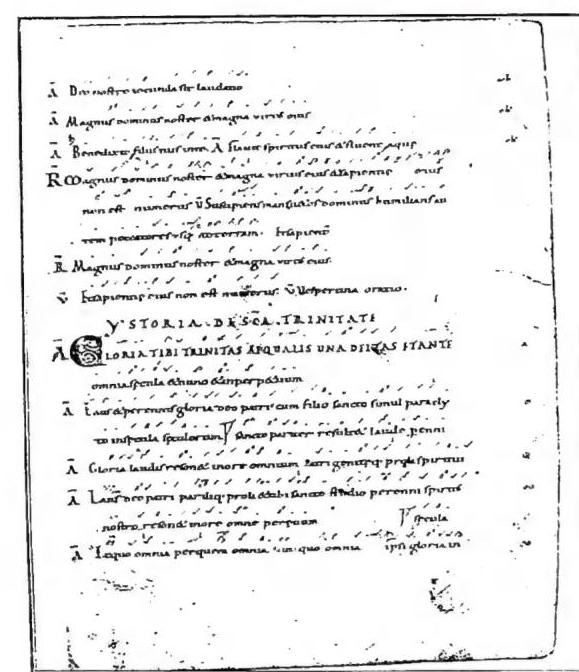 A Deo nostro iocunda sit laudatio
A Magnus dominus noster & magna virtus eius
A Benedixit filiis tuis in te. A Flavit spiritus eius & fluent aquę
R Magnus dominus noster & magna virtus eius & sapientię eius
non est numerus V Suscipiens mansu&os dominus humilians au
tem peccatores usq; ad terram. Et sapientię
R Magnus dominus noster & magna virtus eius.
V Et sapientię eius non est numerus. V Vespertina oratio.
YSTORIA DE SCA TRINITATE
A GLORIA TIBI TRINITAS AEQUALIS UNA DEITAS ET ANTE
omnia secula & nunc & in perp&uum
A Laus & perennis gloria deo patri cum filio sancto simul paracly
to in secula seculorum sancto result& laude penni
A Gloria laudis reson& in ore omnium patri genitęq; proli spiritui
A Laus deo patri pariliq; proli & tibi sancte studio perenni spiritus
nostro reson& ab ore omne per ęuum secula
A Ex quo omnia per quem omnia in quo omnia ipsi gloria in